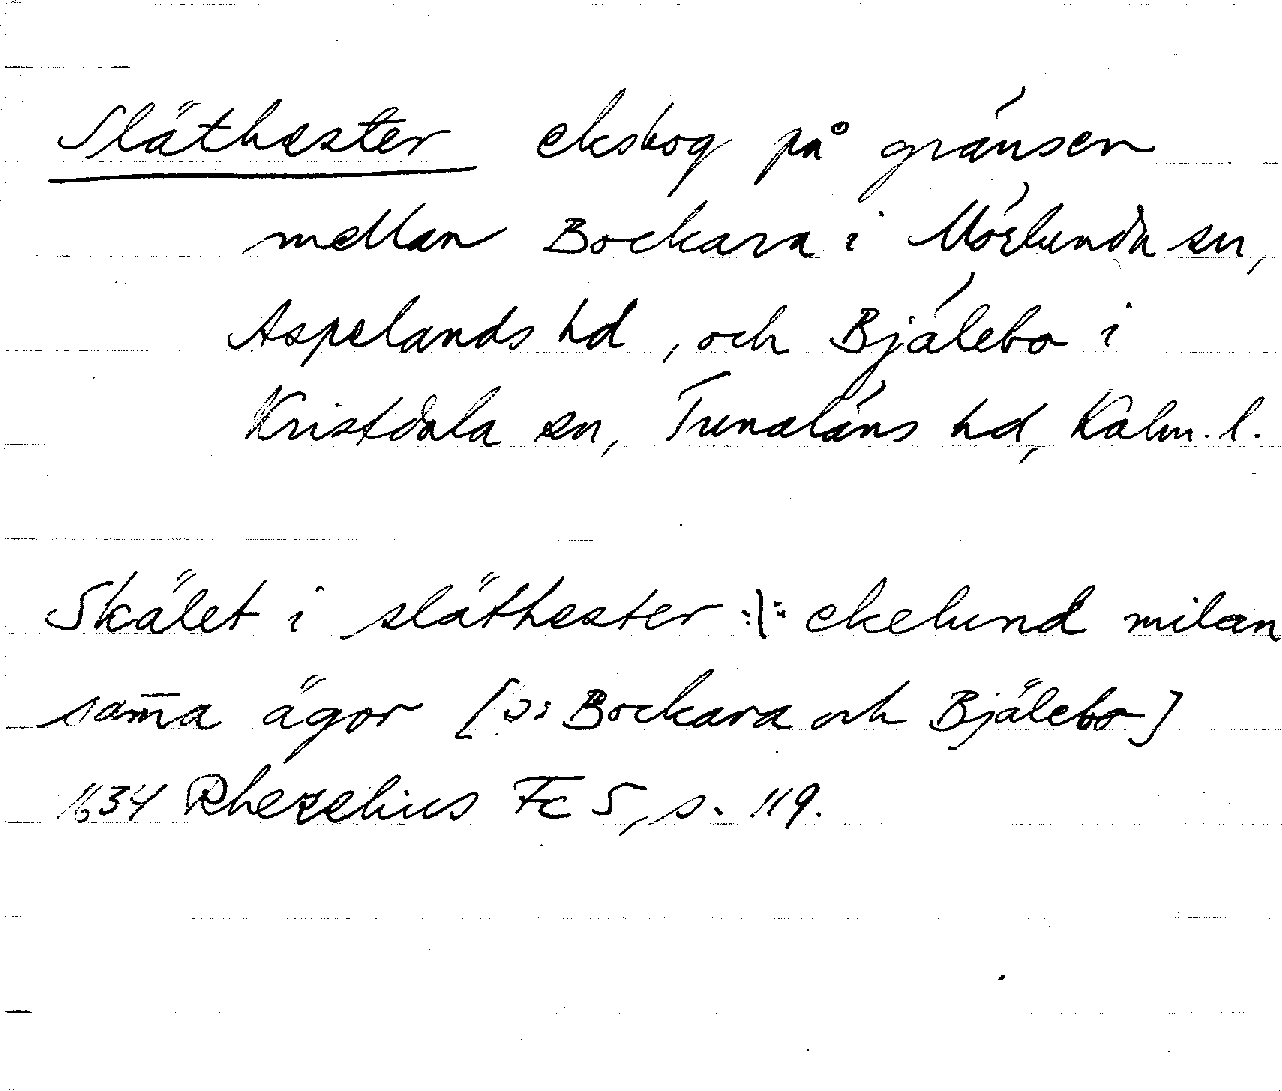 Släthester ekskog på gränsen
mellan Bockara i Mörlunda sn,
Aspelands hd, och Bjälebo i
Kristdala sn, Tunaläns hd, Kalm. l.
Skälet i släthester :/: ekelund milan
sam̄a ägor [ɔ: Bockara och Bjälebo]
1634 Rhezelius Fc 5, s. 119.